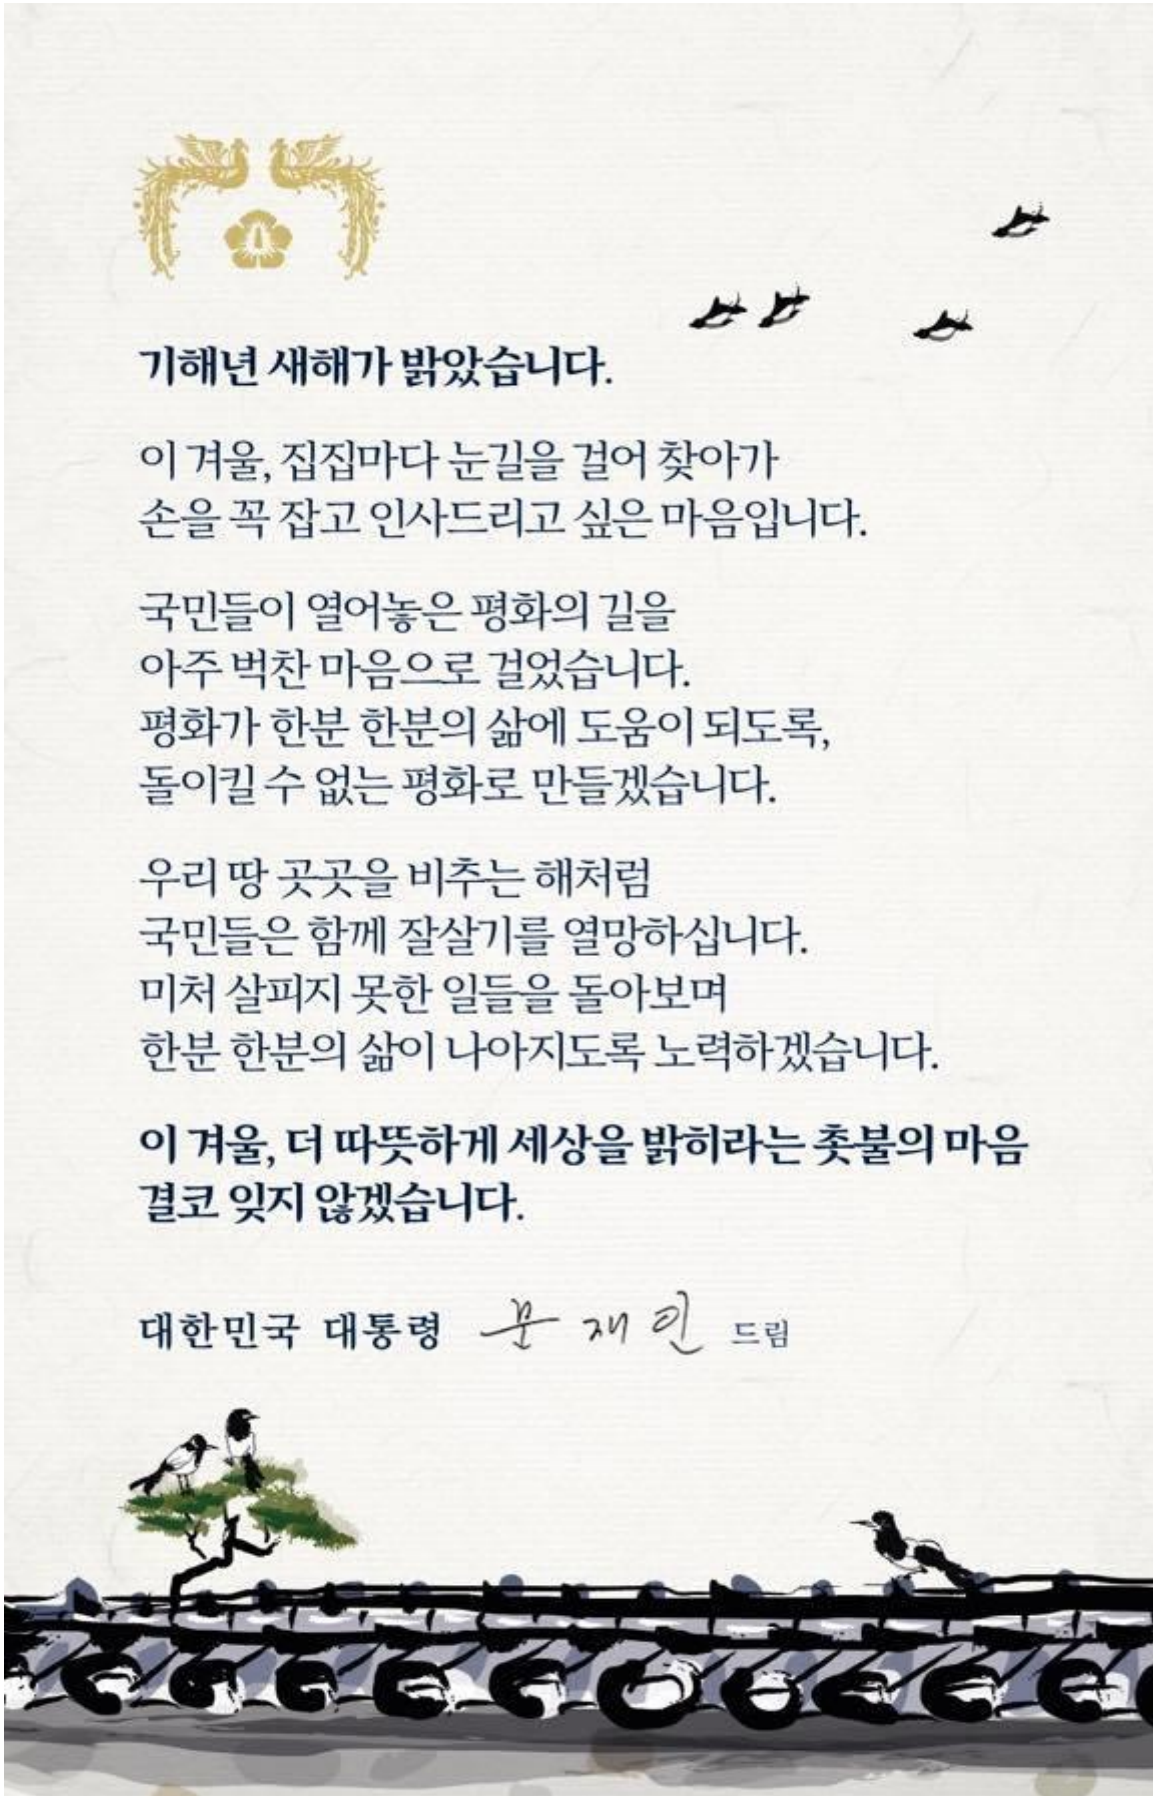 기해년 새해가 밝았습니다.
이 겨울, 집집마다 눈길을 걸어 찾아가
손을 꼭 잡고 인사드리고 싶은 마음입니다.
국민들이 열어놓은 평화의 길을
아주 벅찬 마음으로 걸었습니다.
평화가 한분 한분의 삶에 도움이 되도록,
돌이킬 수 없는 평화로 만들겠습니다.
우리 땅 곳곳을 비추는 해처럼
국민들은 함께 잘살기를 열망하십니다.
미처 살피지 못한 일들을 돌아보며
한분 한분의 삶이 나아지도록 노력하겠습니다.
이 겨울, 더 따뜻하게 세상을 밝히라는 촛불의 마음
결코 잊지 않겠습니다.
대한민국 대통령 문재인 드림